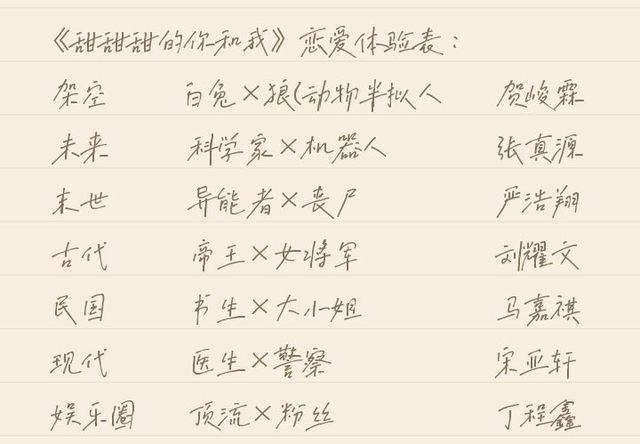 《甜甜甜的你和我》恋爱体验表：
架空 白兔×狼(动物半拟人 贺峻霖
未来 科学家×机器人 张真源
末世 异能者×丧尸 严浩翔
古代 帝王×女将军 刘耀文
民国 书生×大小姐 马嘉祺
现代 医生×警察 宋亚轩
娱乐圈 顶流×粉丝 丁程鑫